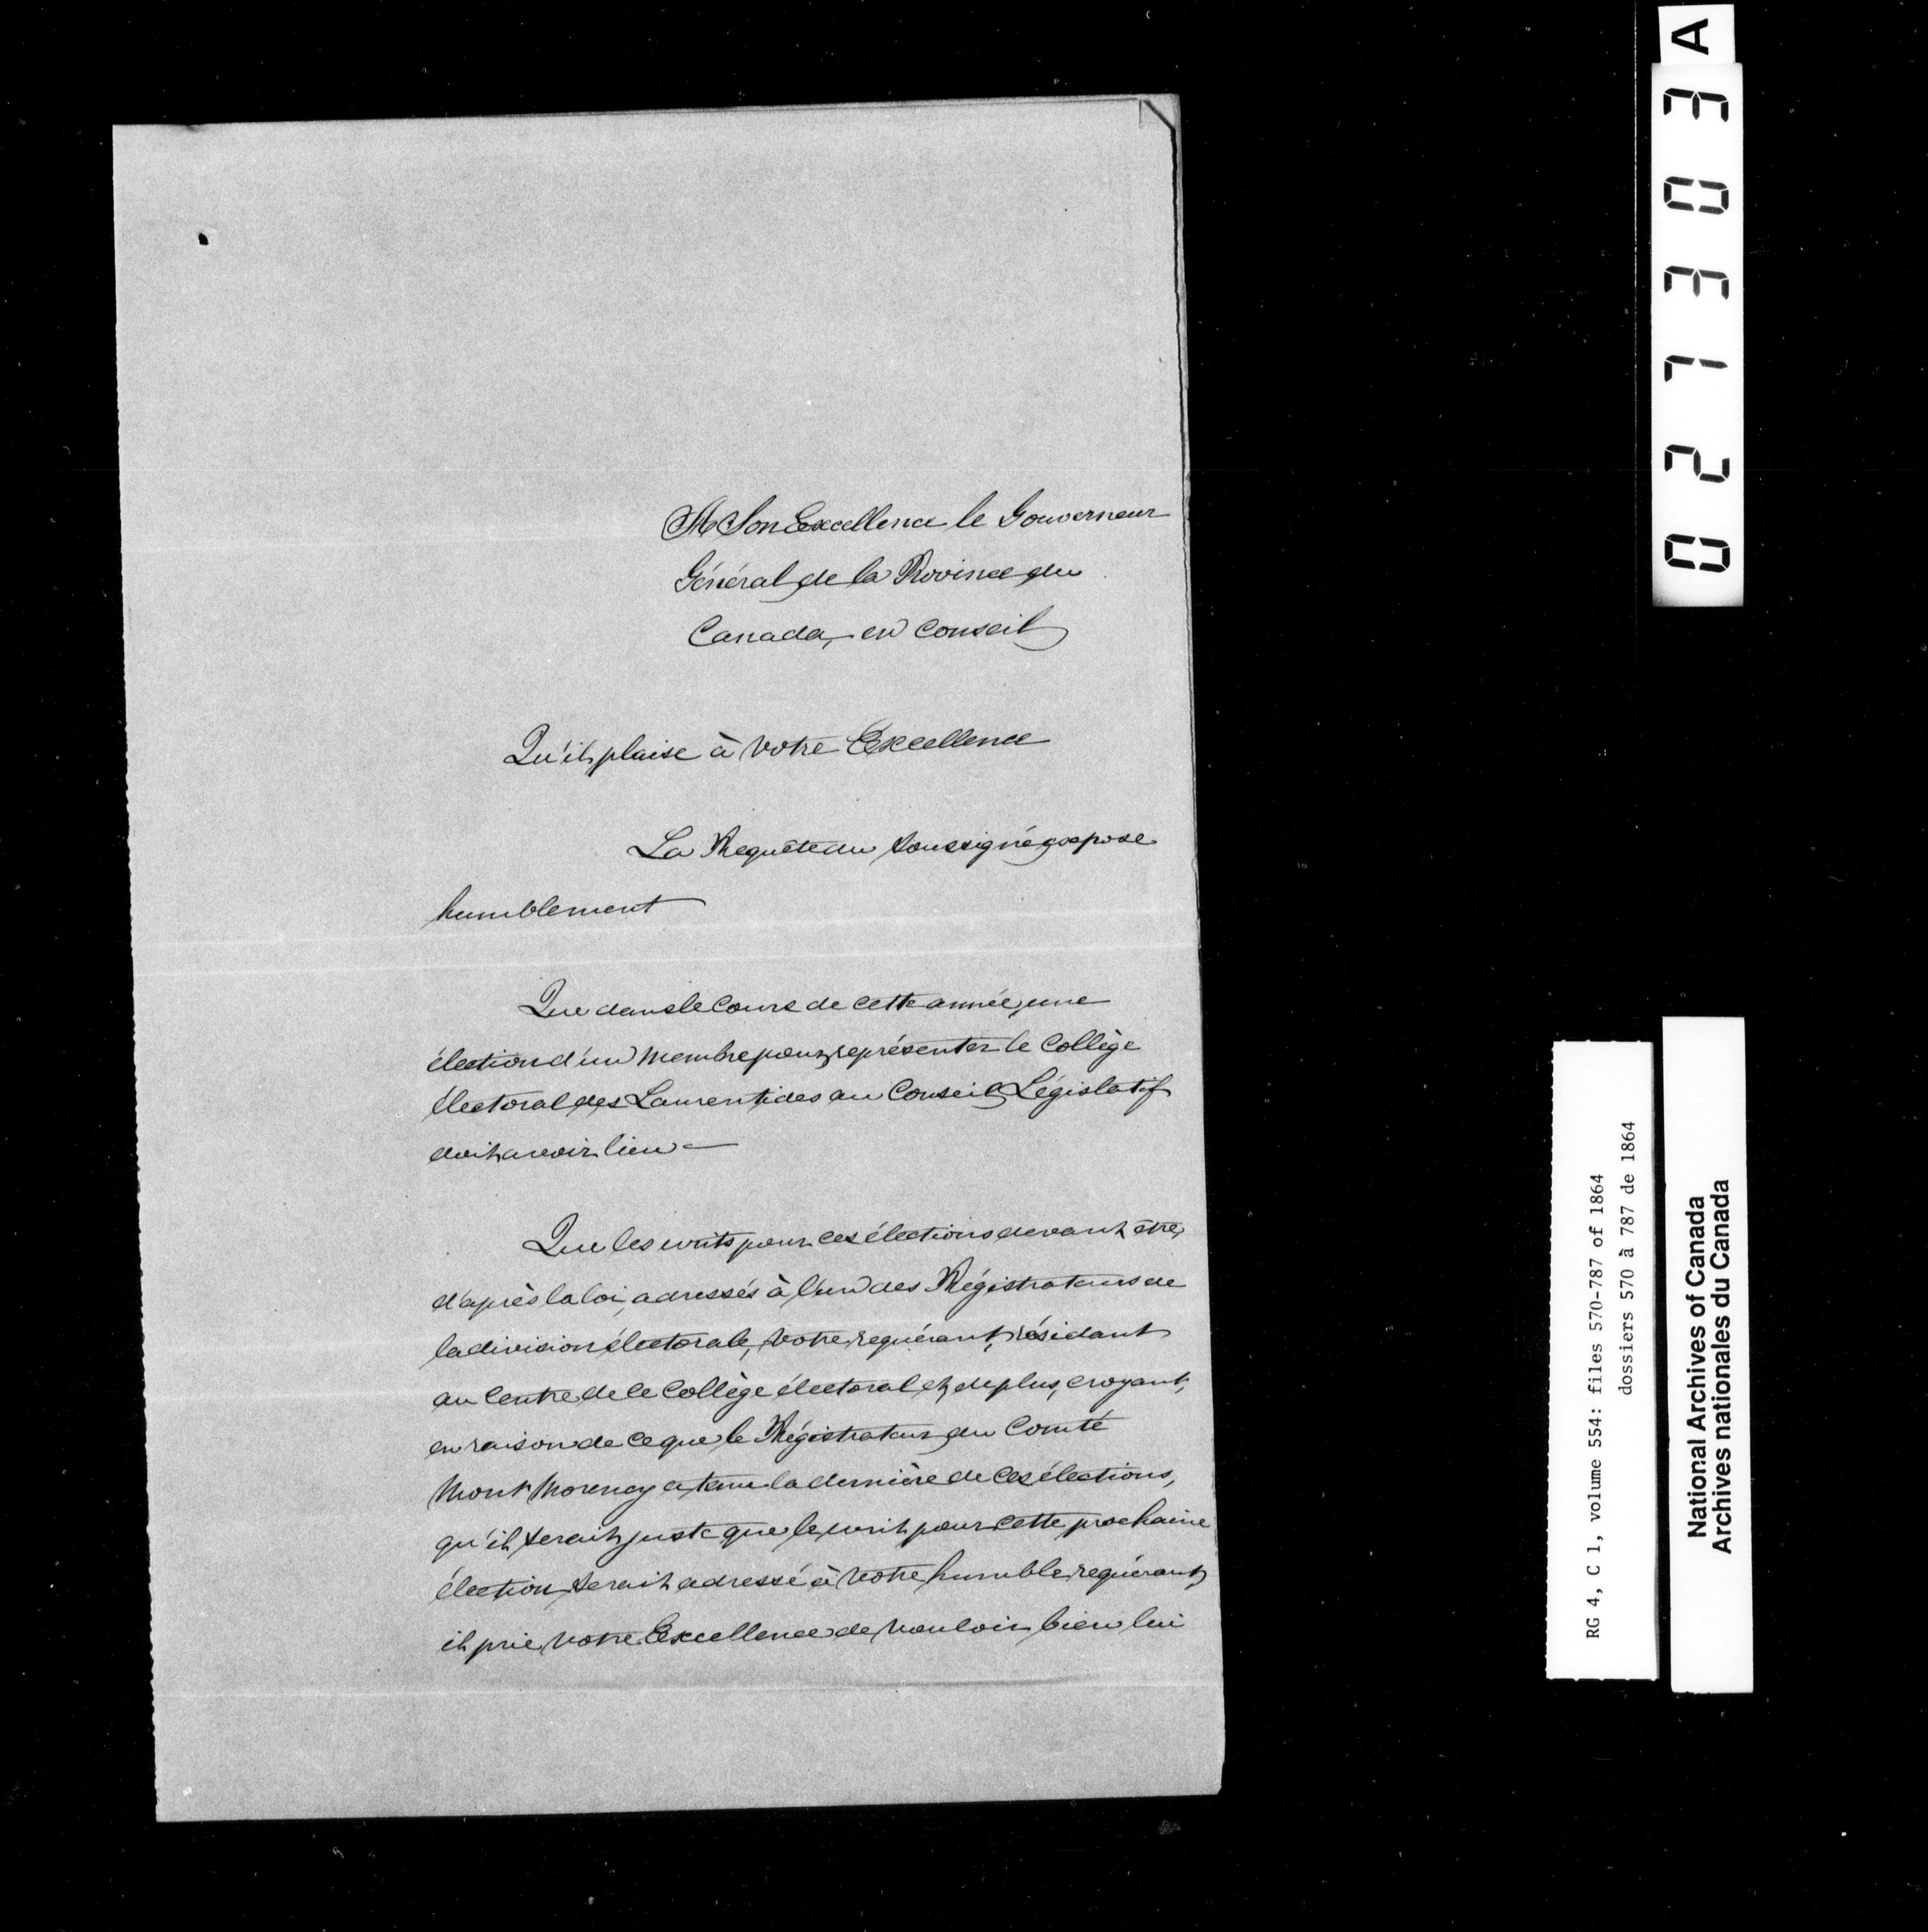 A Son Excellence le Gouverneur
Général de la Province du
Canada, en Conseil
Qu'il plaise à Votre Excellence
La Requête du soussigné expose
humblement
Que dans le cours de cette année, une
élection d'un Membre pour représenter le Collège
électoral des Laurentides au Conseil Législatif
doit avoir lieu —
Que les writs pour ces élections devant être,
d'après la loi, adressés à l'un des Régistrateurs de
la division électorale, votre requérant, résidant
au Centre de ce Collège électoral et, de plus, croyant,
en raison de ce que le Régistrateur du Comté
Mont Morency a tenu la dernière de ces élections,
qu'il serait juste que le writ pour cette prochaine
élection serait adressé à Votre humble requérant,
il prie Votre Excellence de vouloir bien lui
021303A
RG 4, C 1, volume 554: files 570-787 of 1864
dossiers 570 à 787 de 1864
National Archives of Canada
Archives nationales du Canada